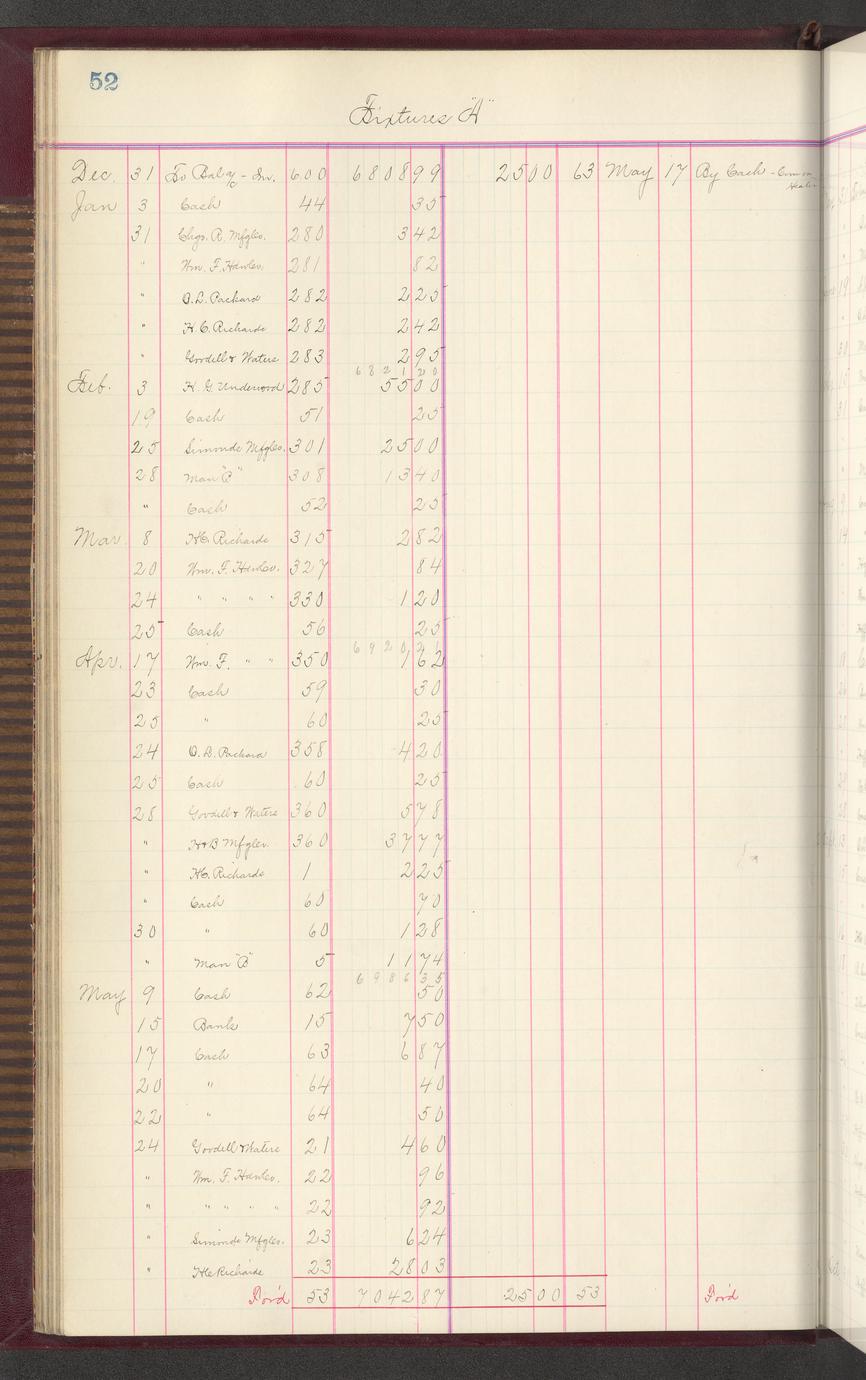 52
Fixtures "A"
Dec. 31 To Bal a/c - Inv. 600 6808 99 25 00 63 May 17 By Cash -
Jan 3 Cash 44 35
31 Chgs. R. Mfg Co. 280 3 42
" Wm. F. Hanlev. 281 82
" O. L. Packard 282 2 25
" H. C. Richards 282 2 42
" Goodell & Waters 283 2 95
6821 20
Feb. 3 H. G. Underwood 285 55 00
19 Cash 51 25
25 Simonds Mfg Co. 301 25 00
28 Man "B" 308 13 40
" Cash 52 25
Mar. 8 H C. Richards 315 2 82
20 Wm. F. 327 84
24 " " " " 330 1 20
25 Cash 56 25
6920 21
Apr. 17 Wm. F. " " 350 1 62
23 Cash 59 30
25 " 60 25
24 O. L. Packard 358 4 20
25 Cash 60 25
28 Goodell & Waters 360 5 78
" H & B Mfg Co. 360 37 77
" H C. Richards 1 2 25
" Cash 60 70
30 " 60 1 28
" Man "B" 5 11 74
6986 35
May 9 Cash 62 50
15 Bank 15 7 50
17 Cash 63 6 87
20 " 64 40
22 " 64 50
24 Goodell & Waters 21 4 60
" Wm. F. Hanlev. 22 96
" " " " " 22 92
" Simonds Mfg Co. 23 6 24
" H C Richards 23 28 03
For'd 53 7042 87 25 00 53 For'd